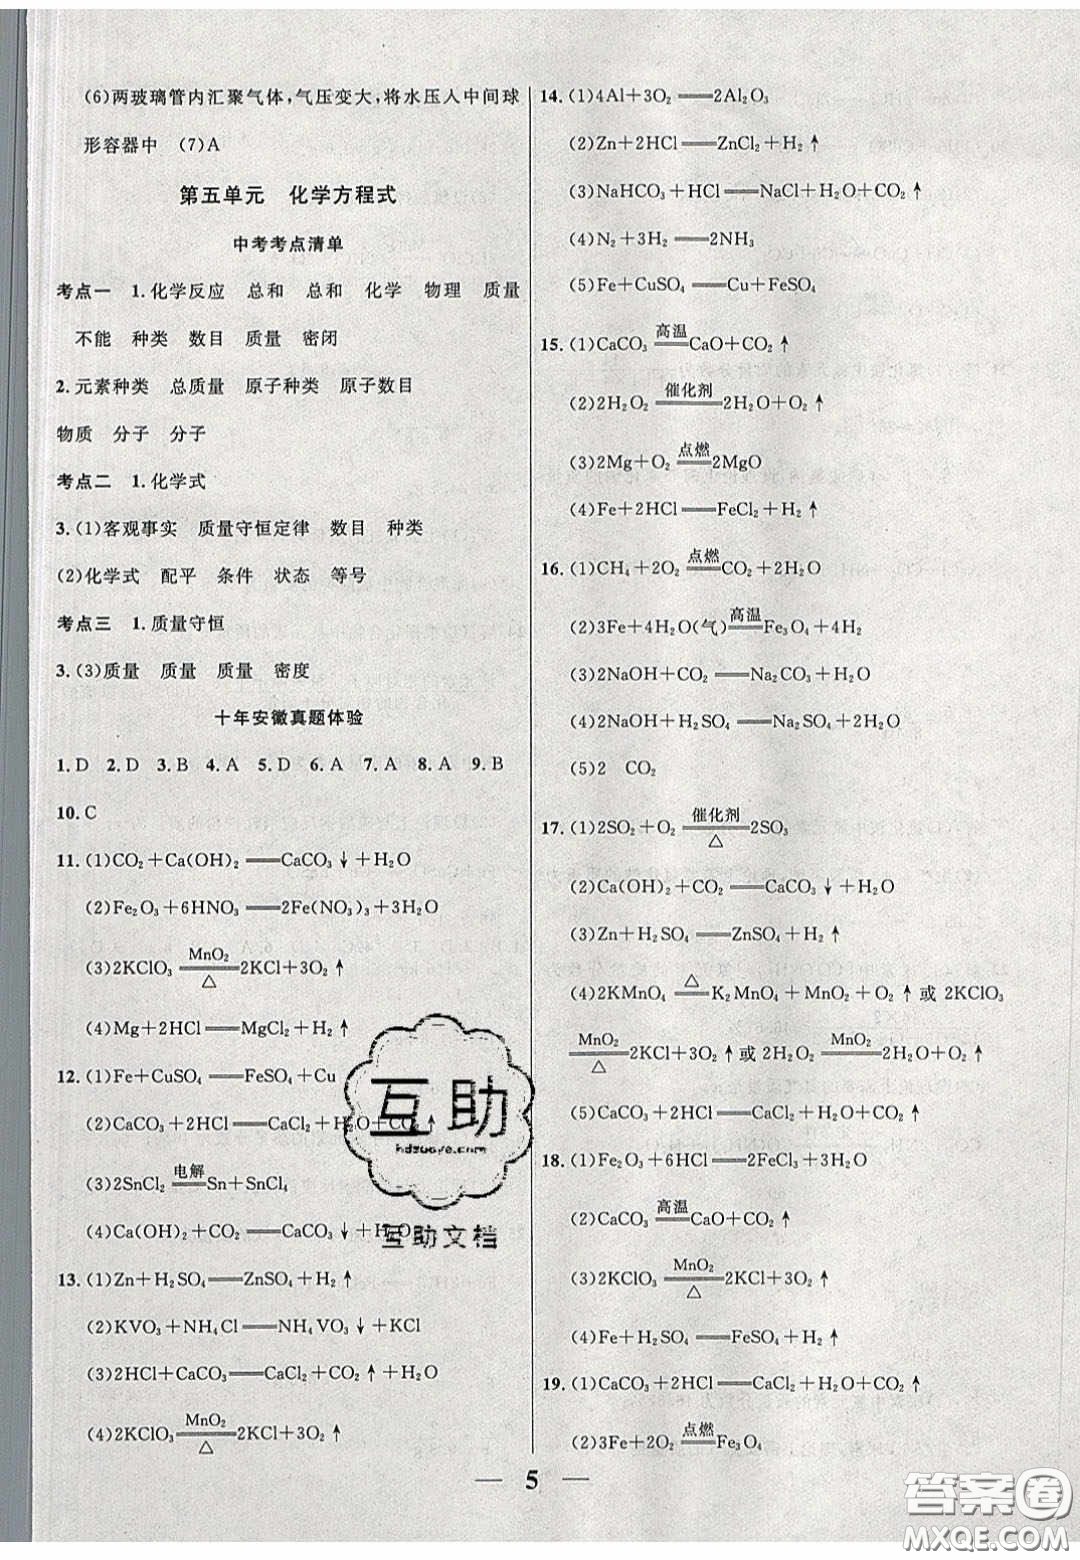 (6)两玻璃管内汇聚气体,气压变大,将水压人中间球
形容器中 (7)A
第五单元 化学方程式
中考考点清单
考点一 1.化学反应 总和 总和 化学 物理 质量
不能 种类 数目 质量 密闭
2.元素种类 总质量 原子种类 原子数目
物质 分子 分子
考点二 1.化学式
3.(1)客观事实 质量守恒定律 数目 种类
(2)化学式 配平 条件 状态 等号
考点三 1.质量守恒
3.(3)质量 质量 质量 密度
十年安徽真题体验
1.D 2.D 3.B 4.A 5.D 6.A 7.A 8.A 9.B
10.C
11.(1)CO₂+Ca(OH)₂══CaCO₃↓+H₂O
(2)Fe₂O₃+6HNO₃══2Fe(NO₃)₃+3H₂O
(3)2KClO₃ ══(MnO₂/△) 2KCl+3O₂↑
(4)Mg+2HCl══MgCl₂+H₂↑
12.(1)Fe+CuSO₄══FeSO₄+Cu
(2)CaCO₃+2HCl══CaCl₂+H₂O+CO₂↑
(3)2SnCl₂ ══(电解) Sn+SnCl₄
(4)Ca(OH)₂+CO₂══CaCO₃↓+H₂O
13.(1)Zn+H₂SO₄══ZnSO₄+H₂↑
(2)KVO₃+NH₄Cl══NH₄VO₃↓+KCl
(3)2HCl+CaCO₃══CaCl₂+CO₂↑+H₂O
(4)2KClO₃ ══(MnO₂/△) 2KCl+3O₂↑
14.(1)4Al+3O₂══2Al₂O₃
(2)Zn+2HCl══ZnCl₂+H₂↑
(3)NaHCO₃+HCl══NaCl+H₂O+CO₂↑
(4)N₂+3H₂══2NH₃
(5)Fe+CuSO₄══Cu+FeSO₄
15.(1)CaCO₃ ══(高温) CaO+CO₂↑
(2)2H₂O₂ ══(催化剂) 2H₂O+O₂↑
(3)2Mg+O₂ ══(点燃) 2MgO
(4)Fe+2HCl══FeCl₂+H₂↑
16.(1)CH₄+2O₂ ══(点燃) CO₂+2H₂O
(2)3Fe+4H₂O(气) ══(高温) Fe₃O₄+4H₂
(3)2NaOH+CO₂══Na₂CO₃+H₂O
(4)2NaOH+H₂SO₄══Na₂SO₄+2H₂O
(5)2 CO₂
17.(1)2SO₂+O₂ ══(催化剂/△) 2SO₃
(2)Ca(OH)₂+CO₂══CaCO₃↓+H₂O
(3)Zn+H₂SO₄══ZnSO₄+H₂↑
(4)2KMnO₄ ══(△) K₂MnO₄+MnO₂+O₂↑或 2KClO₃
══(MnO₂/△) 2KCl+3O₂↑或 2H₂O₂ ══(MnO₂) 2H₂O+O₂↑
(5)CaCO₃+2HCl══CaCl₂+H₂O+CO₂↑
18.(1)Fe₂O₃+6HCl══2FeCl₃+3H₂O
(2)CaCO₃ ══(高温) CaO+CO₂↑
(3)2KClO₃ ══(MnO₂/△) 2KCl+3O₂↑
(4)Fe+H₂SO₄══FeSO₄+H₂↑
19.(1)CaCO₃+2HCl══CaCl₂+H₂O+CO₂↑
(2)3Fe+2O₂ ══(点燃) Fe₃O₄
— 5 —
互助
hdzuoye.com
互助文档
答案圈
MXQE.COM